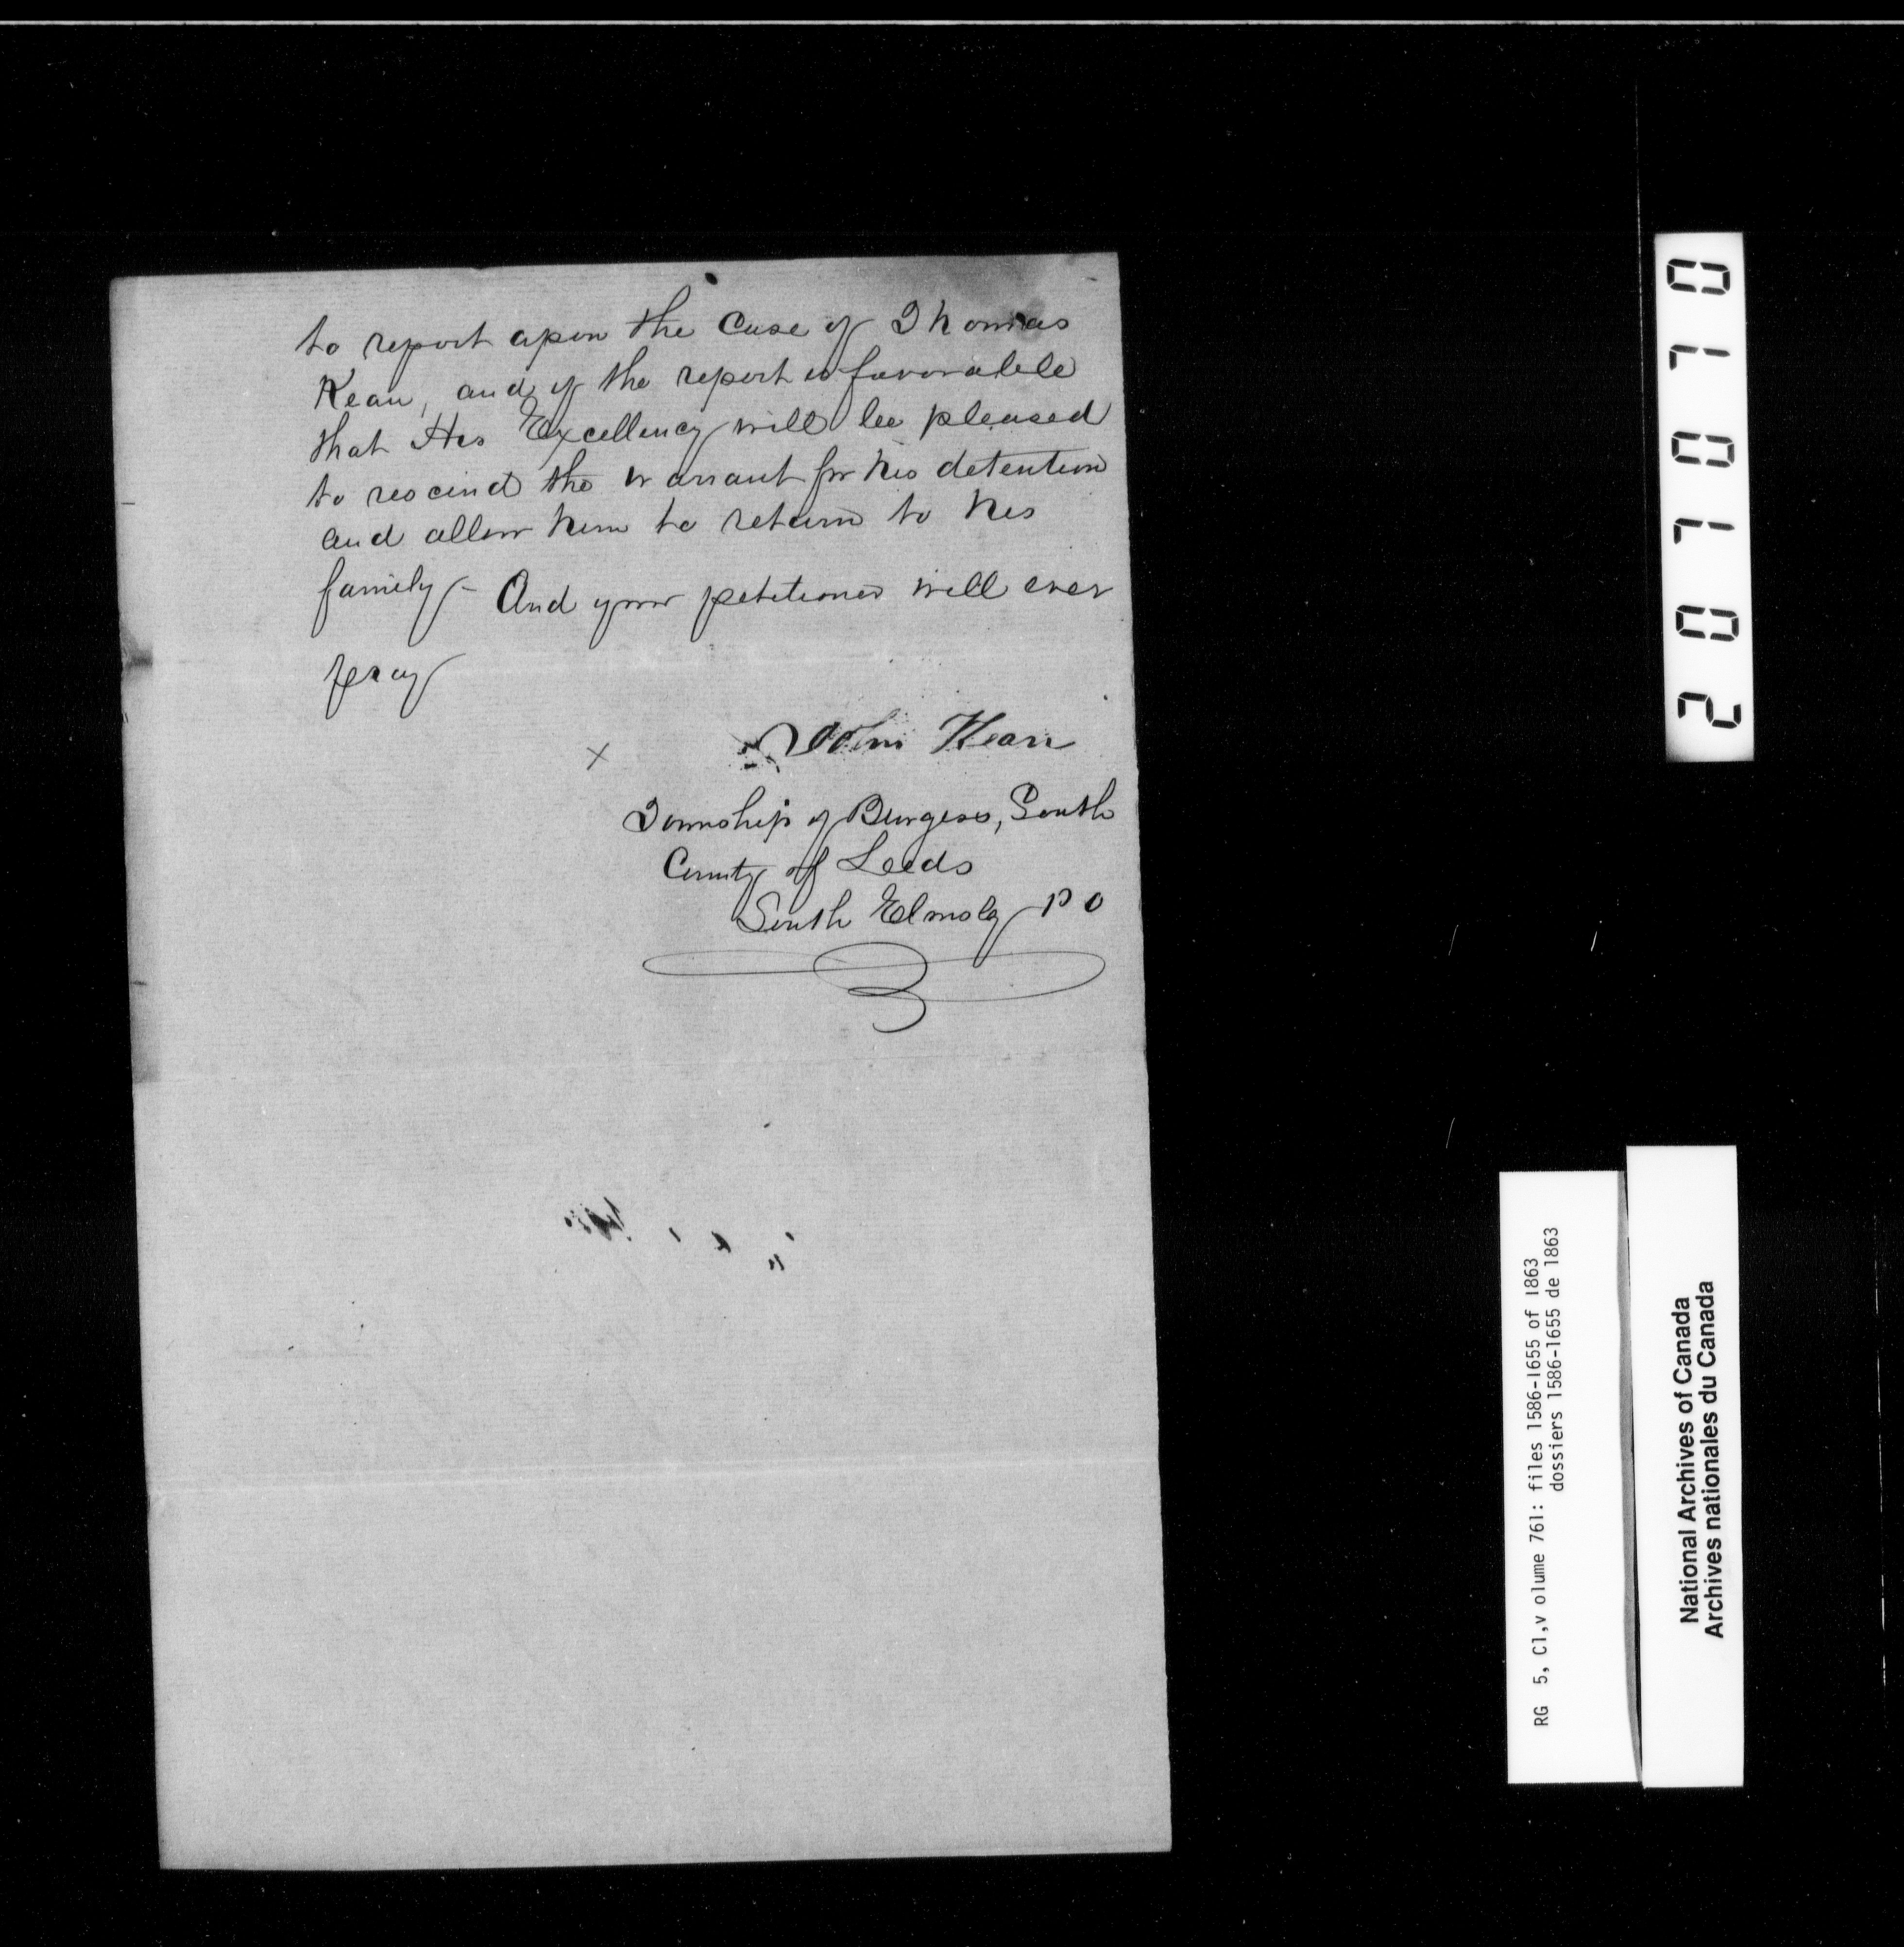 to report upon the Case of Thomas
Kean, and if the report is favorable
that His Excellency will be pleased
to rescind the warrant for his detention
and allow him to return to his
family - And your petitioner will ever
pray
x John Kean
Township of Burgess, South
County of Leeds
South Elmsley P O
207070
RG 5, C1,v olume 761: files 1586-1655 of 1863
dossiers 1586-1655 de 1863
National Archives of Canada
Archives nationales du Canada